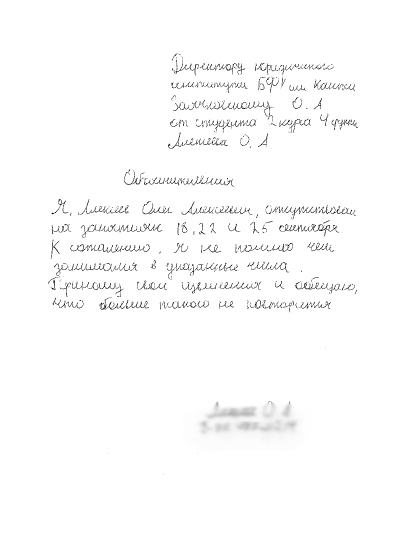 Директору юридического
института БФУ им Канта
Заячковскому О. А
от студента 2 курса 4 группы
Алексеева О. А
Объяснительная
Я, Алексеев Олег Алексеевич, отсутствовал
на занятиях 18, 22 и 25 сентября
К сожалению, я не помню чем
занимался в указанные числа.
Приношу свои извинения и обещаю,
что больше такого не повторится
О. А